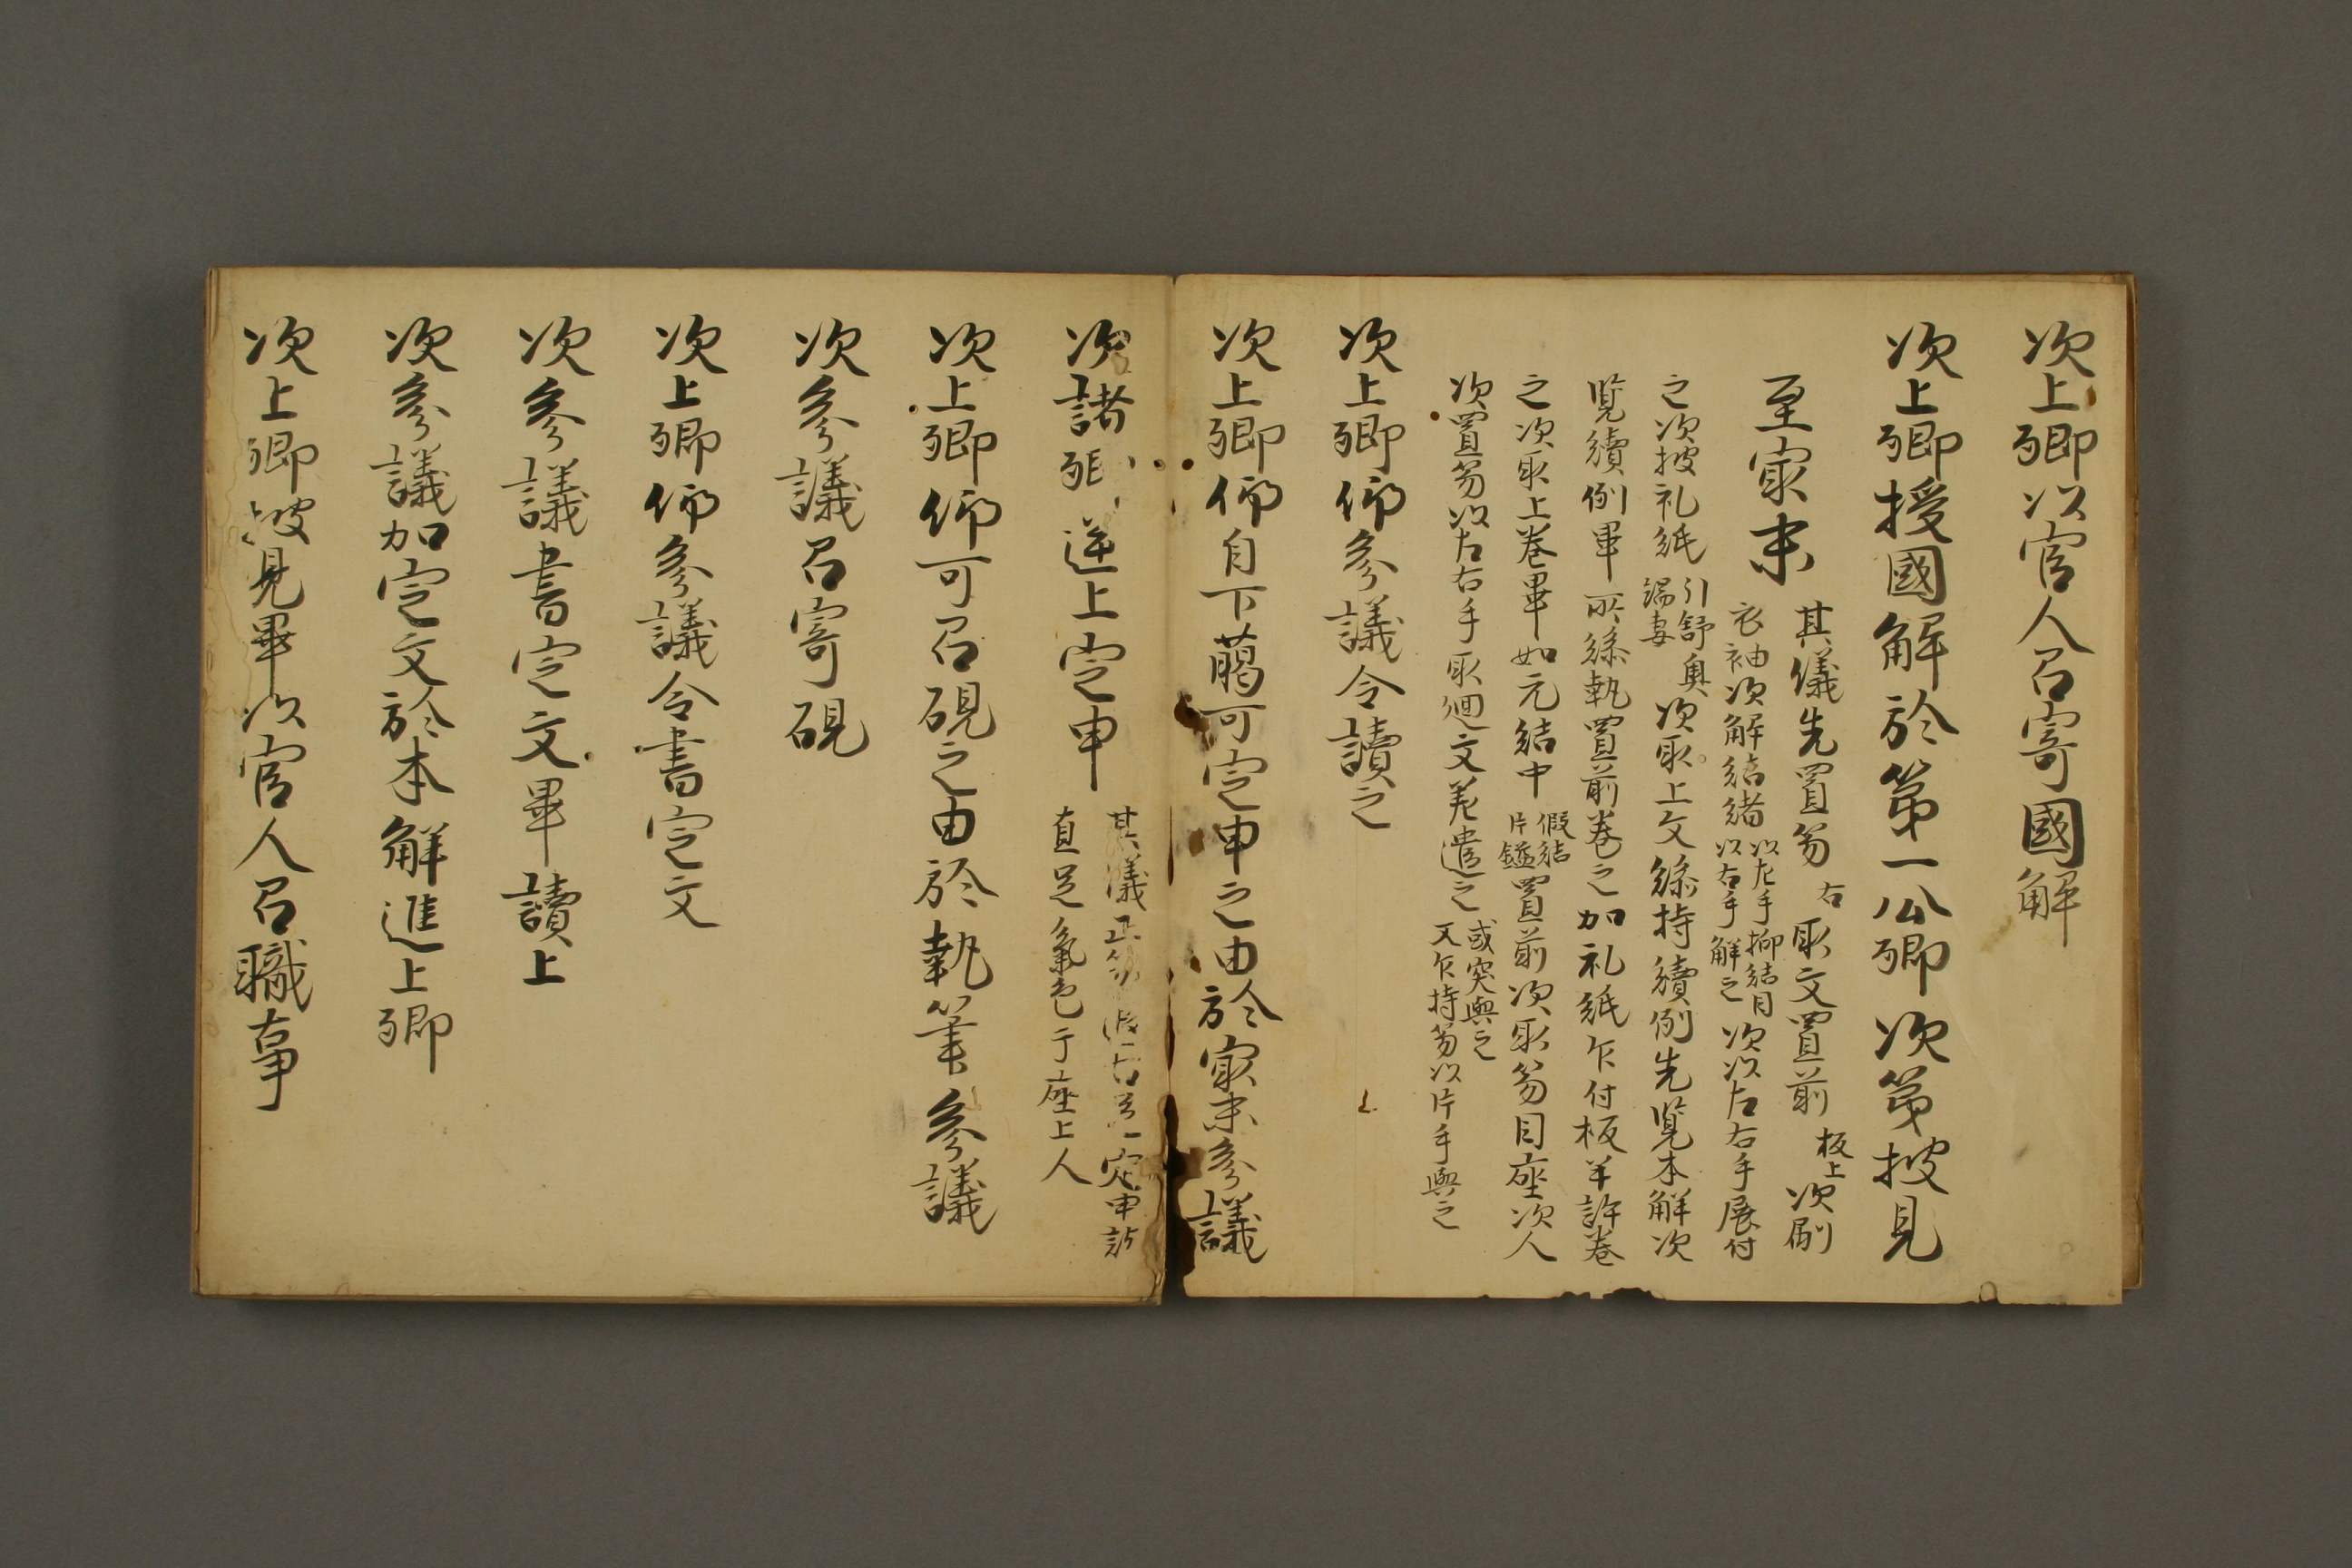 次上卿以官人召寄國解
次上卿授國解於第一公卿次第披見
至最末
其儀先置笏右取文置前板上次刷
衣袖次解結緒以左手抑結目以右手解之次以左右手展付
之次披礼紙引舒奥端妻次取上文繇持續例先覧本解次
覧續例畢所繇執置前巻之加礼紙乍付板半許巻
之次取上巻畢如元結中假結片鎰置前次取笏目座次人
次置笏以左右手取廻文差遣之或突與之又乍持笏以片手與之
次上卿仰參議令讀之
次上卿仰自下﨟可定申之由於最末參議
次諸卿逆上定申
其儀正笏定申訖
直足氣色于座上人
次上卿仰可召硯之由於執筆參議
次參議召寄硯
次上卿仰參議令書定文
次參議書定文畢讀上
次參議加定文於本解進上卿
次上卿披見畢以官人召職事